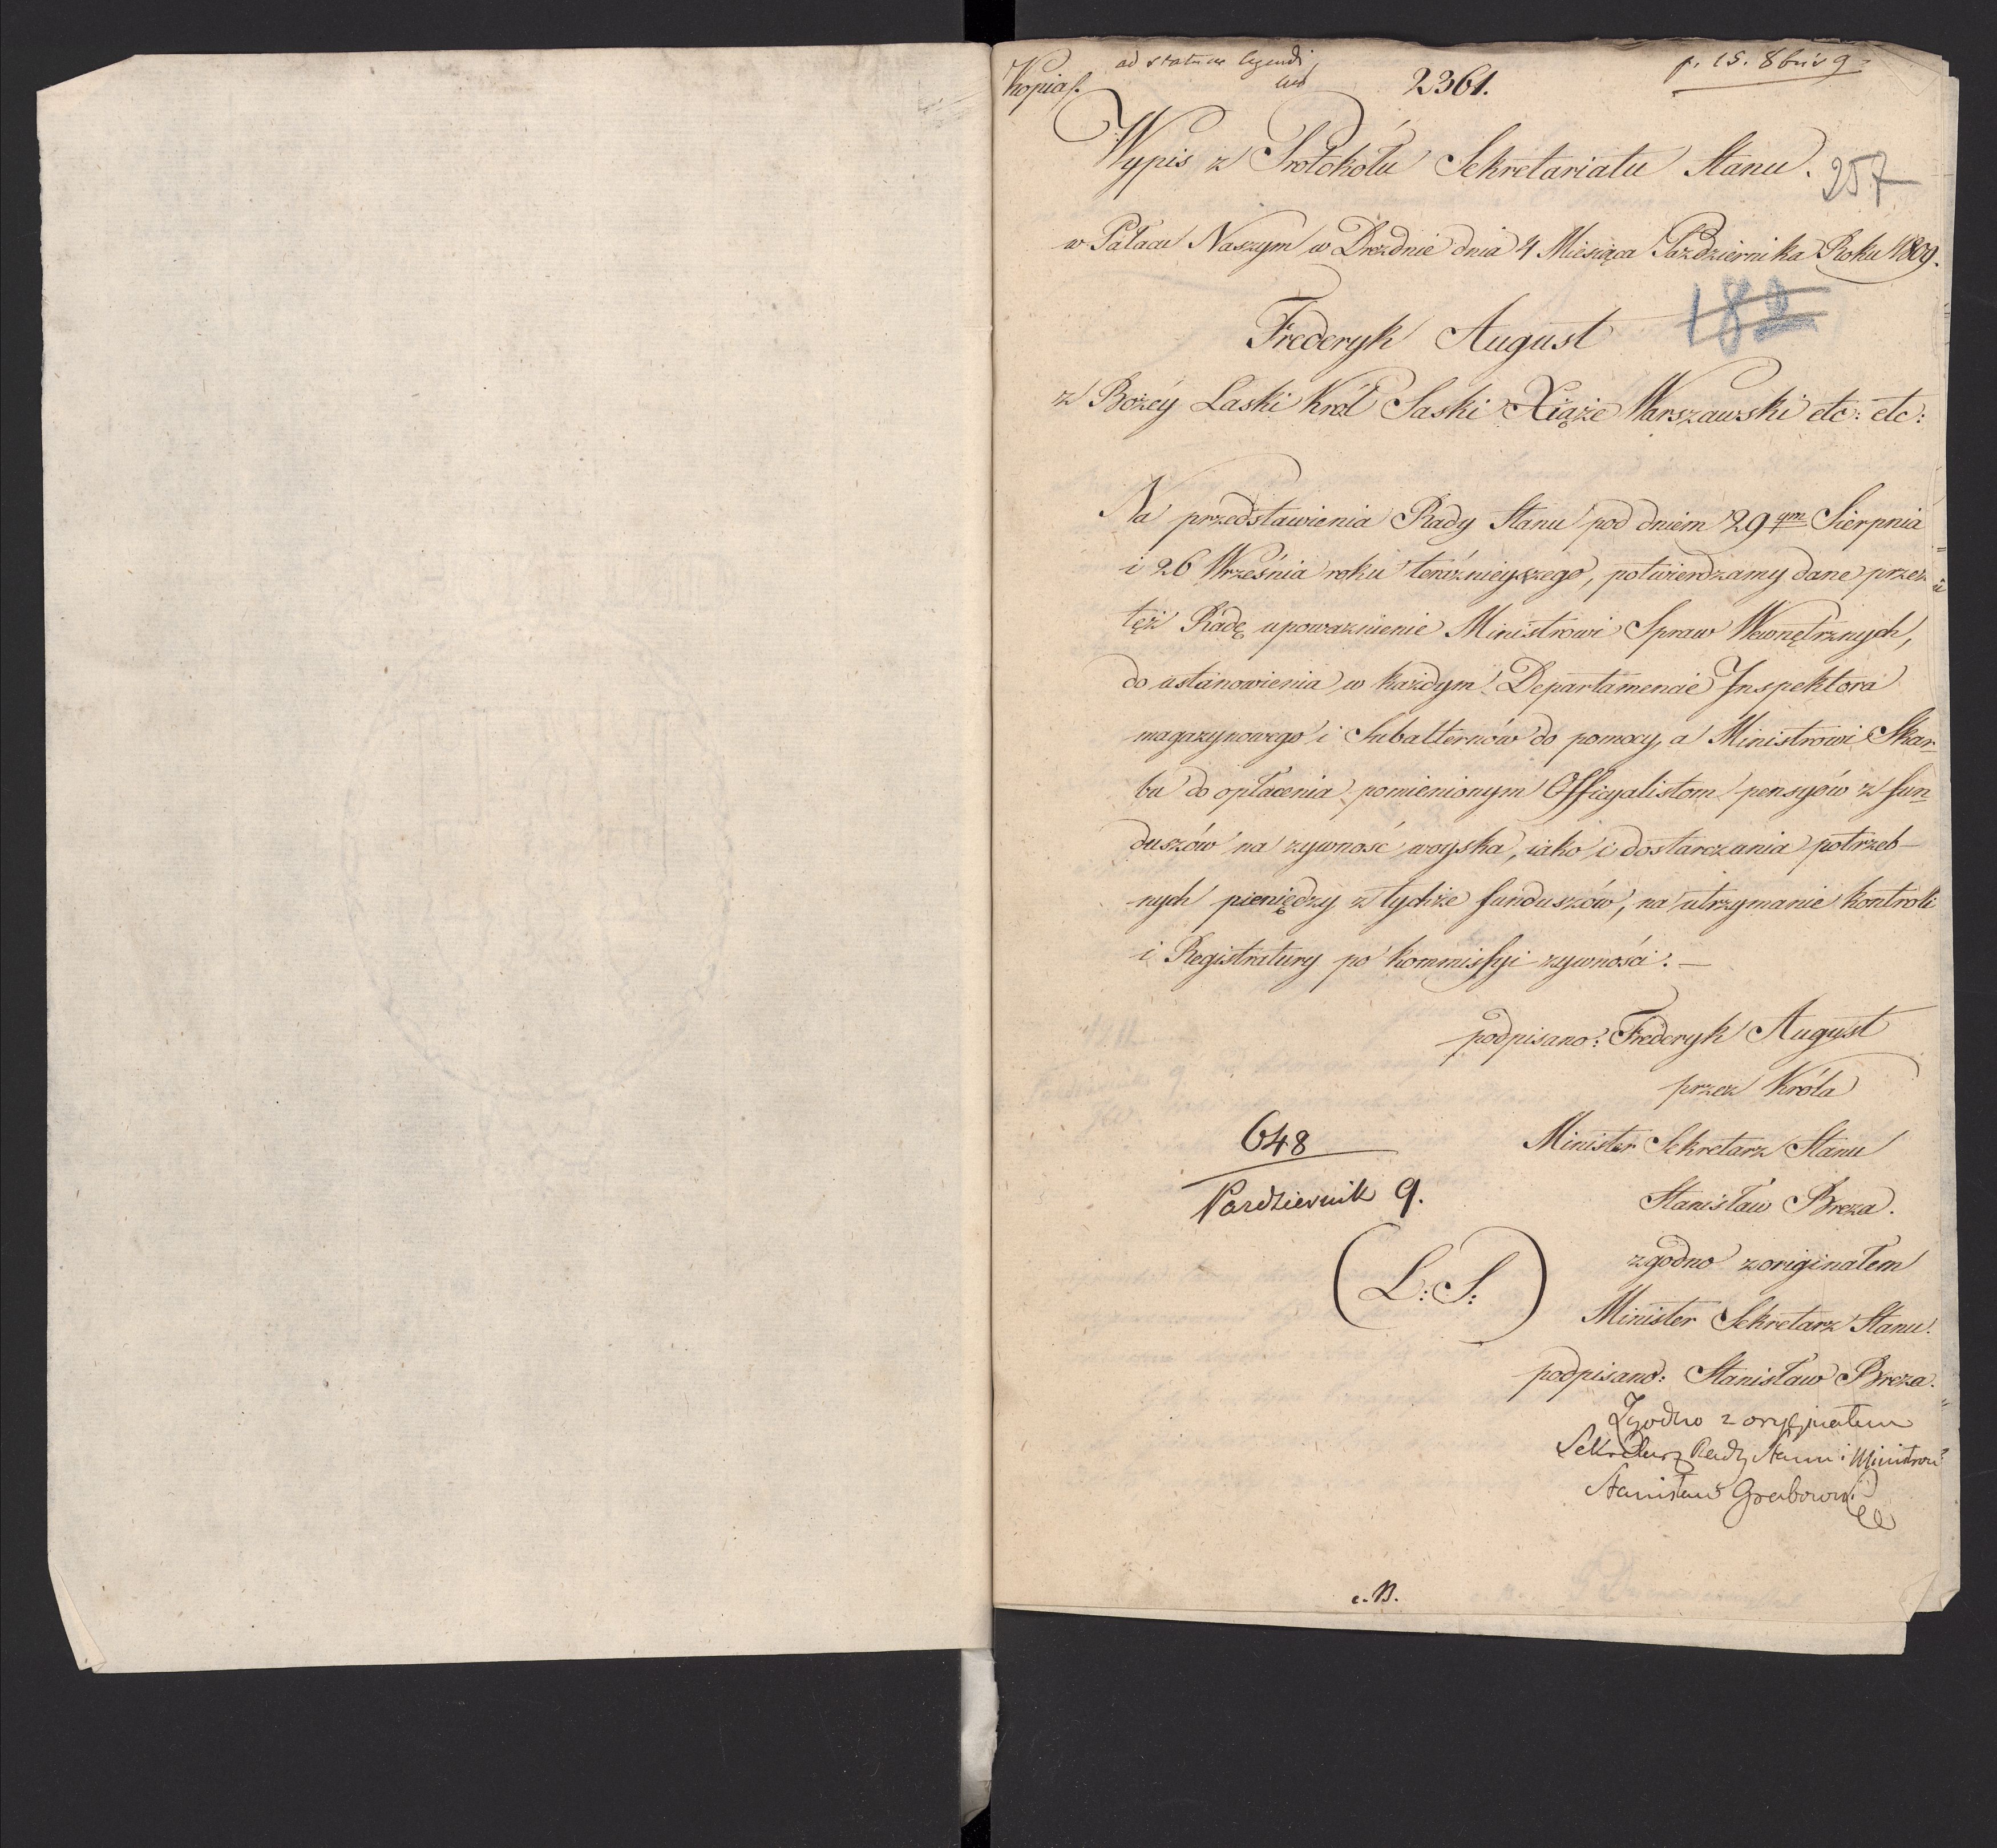 Kopia.
ad statum legendi
2361.
p. 15. 8bris 9
Wypis z Protokołu Sekretariatu Stanu.
257
w Pałacu Naszym w Dreznie dnia 4 Miesiąca Października Roku 1809.
Frederyk August
182
z Bożéy Łaski Król Saski Xiąże Warszawski etc: etc:
Na przedstawienia Rady Stanu pod dniem 29 ym Sierpnia
i 26 Września roku teraźnieyszego, potwierdzamy dane przez
tęż Radę upoważnienie Ministrowi Spraw Wewnętrznych,
do ustanowienia w każdym Departamencie Inspektora
magazynowego i Subalternów do pomocy, a Ministrowi Skar-
bu do opłacenia pomienionym Officyalistom pensyów z fun-
duszów na żywność woyska, iako i dostarczania potrzeb-
nych pieniędzy z tychże funduszów, na utrzymanie kontroli
i Registratury po kommissyi żywności. —
podpisano: Frederyk August
przez Króla
648
Minister Sekretarz Stanu
Pazdziernik 9.
Stanisław Breza.
zgodno z originałem
(L: S:)
Minister Sekretarz Stanu.
podpisano: Stanisław Breza.
Zgodno z oryginałem
Sekretarz Rady Stanu i Ministrów
Stanisław Grabowski
c. B.